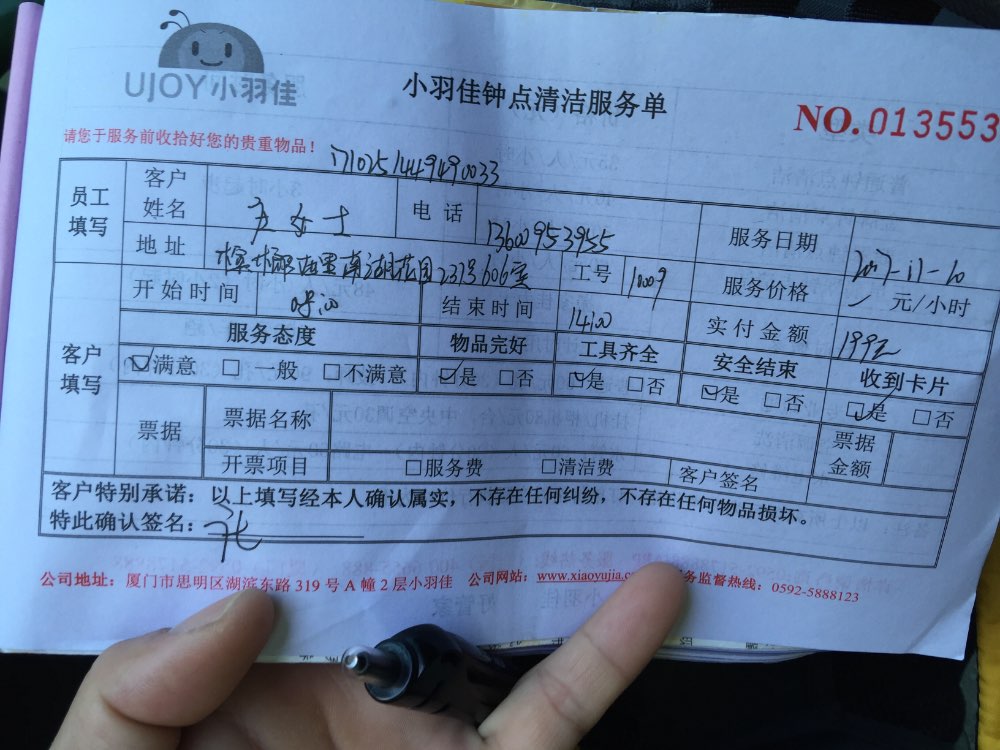 UJOY小羽佳
小羽佳钟点清洁服务单
NO.013553
请您于服务前收拾好您的贵重物品！
171025144949490033
员工填写 客户姓名 女士 电话 13600953955 服务日期 2017-11-10
地址 槟榔西里南湖花园231号606室 工号 10009 服务价格 元/小时
客户填写 开始时间 08:00 结束时间 14:00 实付金额
服务态度 物品完好 工具齐全 安全结束 收到卡片
☑满意 □一般 □不满意 ☑是 □否 ☑是 □否 ☑是 □否 ☑是 □否
票据 票据名称 票据金额
开票项目 □服务费 □清洁费 客户签名
客户特别承诺：以上填写经本人确认属实，不存在任何纠纷，不存在任何物品损坏。
特此确认签名：
公司地址：厦门市思明区湖滨东路 319 号 A 幢 2 层小羽佳 公司网站：www.xiaoyujia.c 务监督热线：0592-5888123